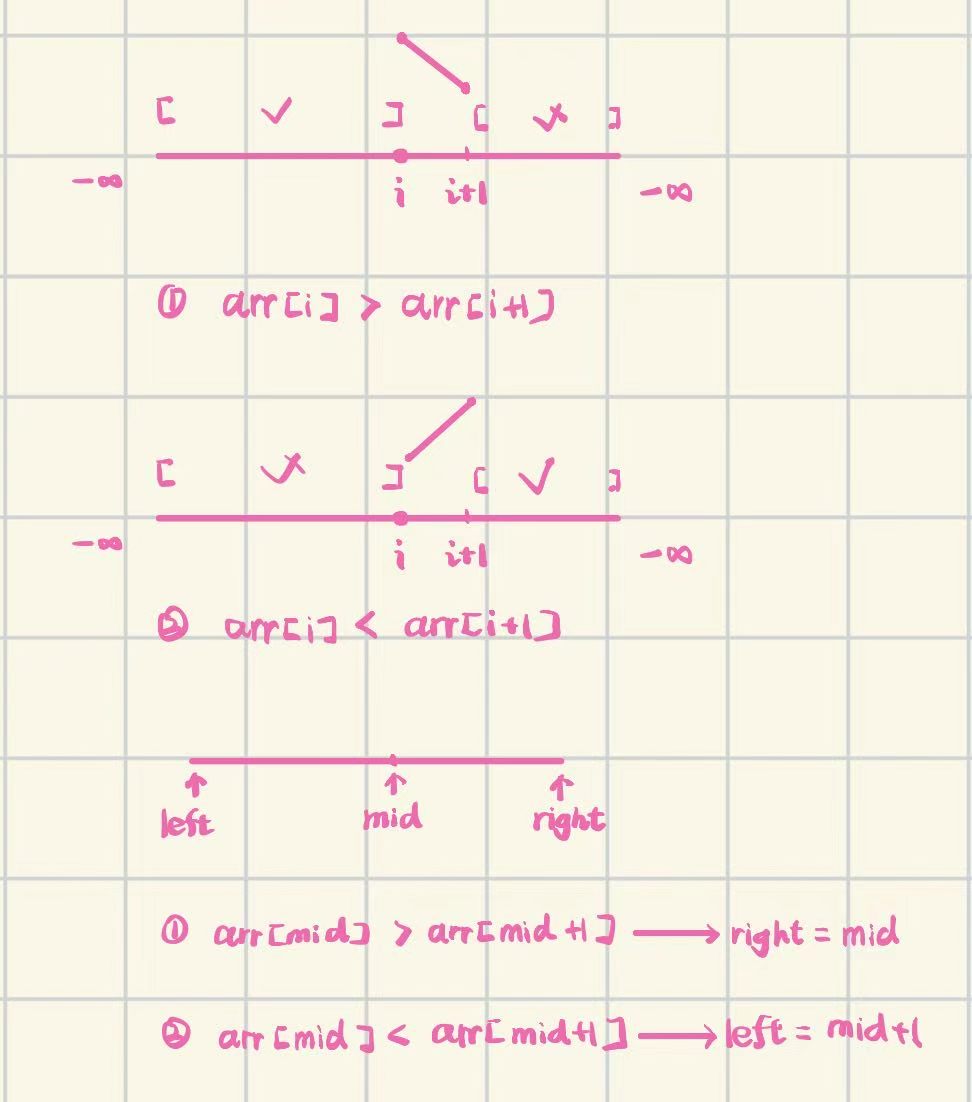 [ ✓ ] [ ✓× ]
-∞ i i+1 -∞
① arr[i] > arr[i+1]
[ ✓× ] [ ✓ ]
-∞ i i+1 -∞
② arr[i] < arr[i+1]
left mid right
① arr[mid] > arr[mid+1] → right = mid
② arr[mid] < arr[mid+1] → left = mid+1